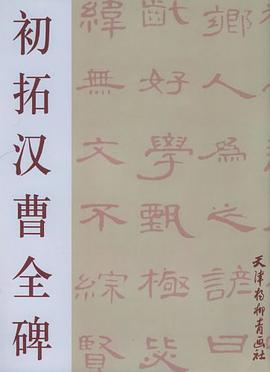 初拓汉曹全碑
鄉人為之諺曰
齔好學甄極毖
緯無文不綜賢
天津杨柳青画社